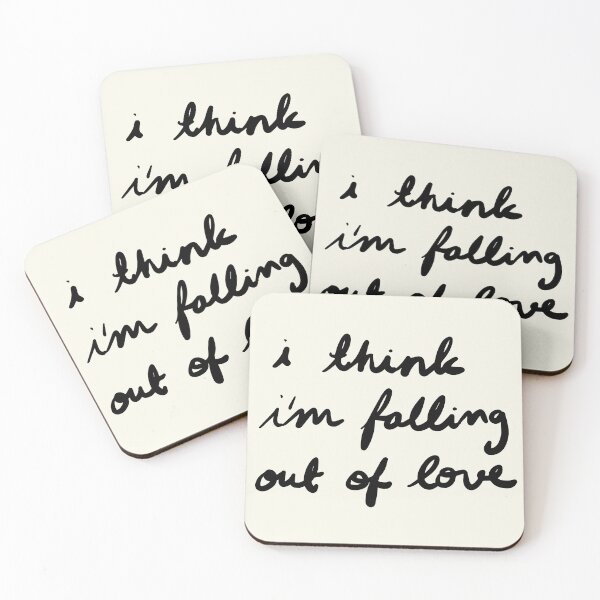 i think
i'm
i think
i'm falling
out of love
i think
i'm falling
out of
i think
i'm falling
out of love